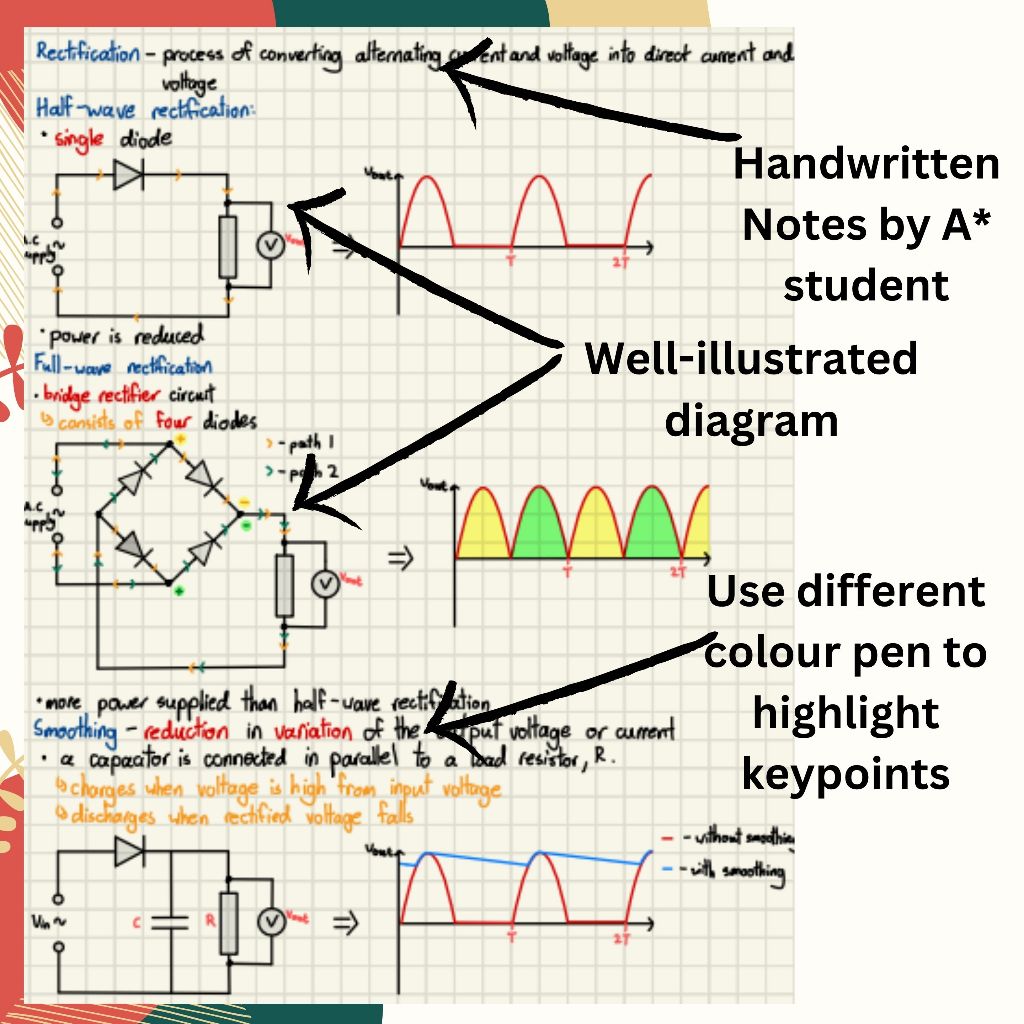 Rectification - process of converting alternating current and voltage into direct current and
voltage
Half-wave rectification:
• single diode
Vout
A.C
supply
~
V
Vout
⇒
T
2T
Handwritten
Notes by A*
student
• power is reduced
Full-wave rectification
• bridge rectifier circuit
↳ consists of four diodes
Well-illustrated
diagram
+
> - path 1
> - path 2
A.C
supply
~
-
-
+
V
Vout
⇒
Vout
T
2T
Use different
colour pen to
highlight
keypoints
• more power supplied than half-wave rectification
Smoothing - reduction in variation of the output voltage or current
• a capacitor is connected in parallel to a load resistor, R.
↳ charges when voltage is high from input voltage
↳ discharges when rectified voltage falls
Vin ~
C
R
V
Vout
⇒
Vout
T
2T
- - without smoothing
- - with smoothing